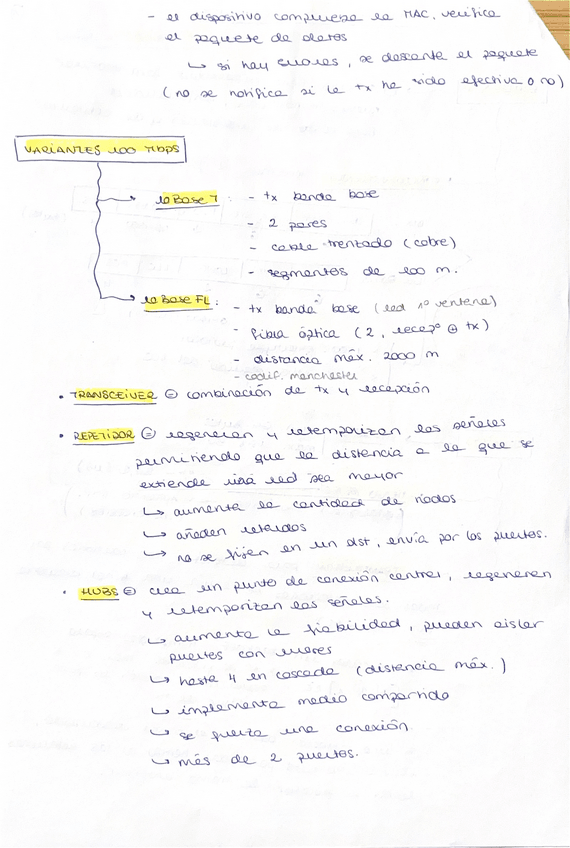 - el dispositivo comprueba la MAC, verifica
el paquete de datos
↳ si hay errores, se descarta el paquete
(no se notifica si la tx ha sido efectiva o no)
VARIANTES 100 Mbps
10 Base T : - tx banda base
- 2 pares
- cable trentado (cobre)
- segmentos de 100 m.
10 Base FL : - tx banda base (led 1º ventana)
- fibra óptica (2, recepº ⊕ tx)
- distancia máx. 2000 m
- codif. manchester
• TRANSCEIVER ⊜ combinación de tx y recepción
• REPETIDOR ⊜ regeneran y retemporizan las señales
permitiendo que la distancia a la que se
extiende una red sea mayor
↳ aumenta la cantidad de nodos
↳ añaden retardos
↳ no se fijen en un dst, envía por los puertos.
• HUBS ⊜ crea un punto de conexión central, regeneran
y retemporizan las señales.
↳ aumenta la fiabilidad, pueden aislar
puertos con errores
↳ hasta 4 en cascada (distancia máx.)
↳ implementa medio compartido
↳ se fuerza una conexión.
↳ más de 2 puertos.